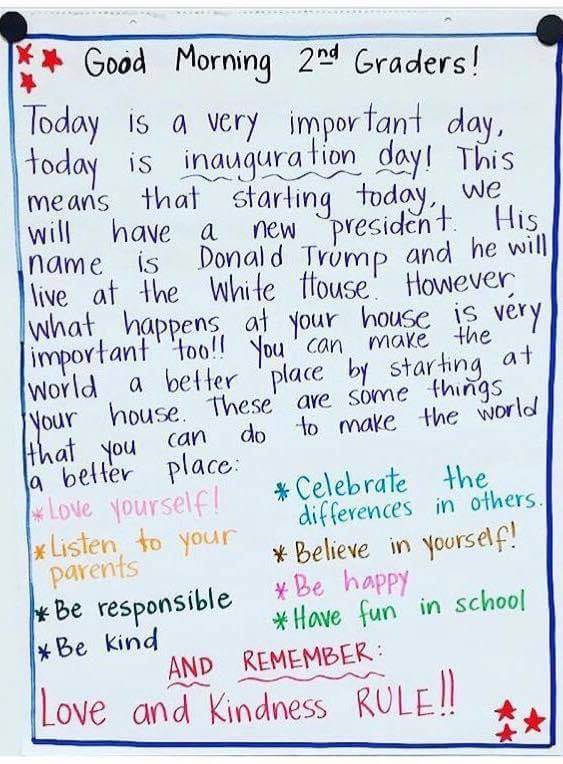 Good Morning 2nd Graders!
Today is a very important day,
today is inauguration day! This
means that starting today, we
will have a new president. His
name is Donald Trump and he will
live at the White House. However,
what happens at your house is very
important too!! You can make the
world a better place by starting at
your house. These are some things
that you can do to make the world
a better place:
* Love yourself!
* Listen to your
parents
* Be responsible
* Be kind
* Celebrate the
differences in others.
* Believe in yourself!
* Be happy
* Have fun in school
AND REMEMBER:
Love and Kindness RULE!!